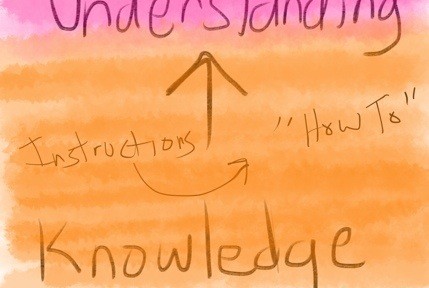 Understanding
Instructions "How To"
Knowledge